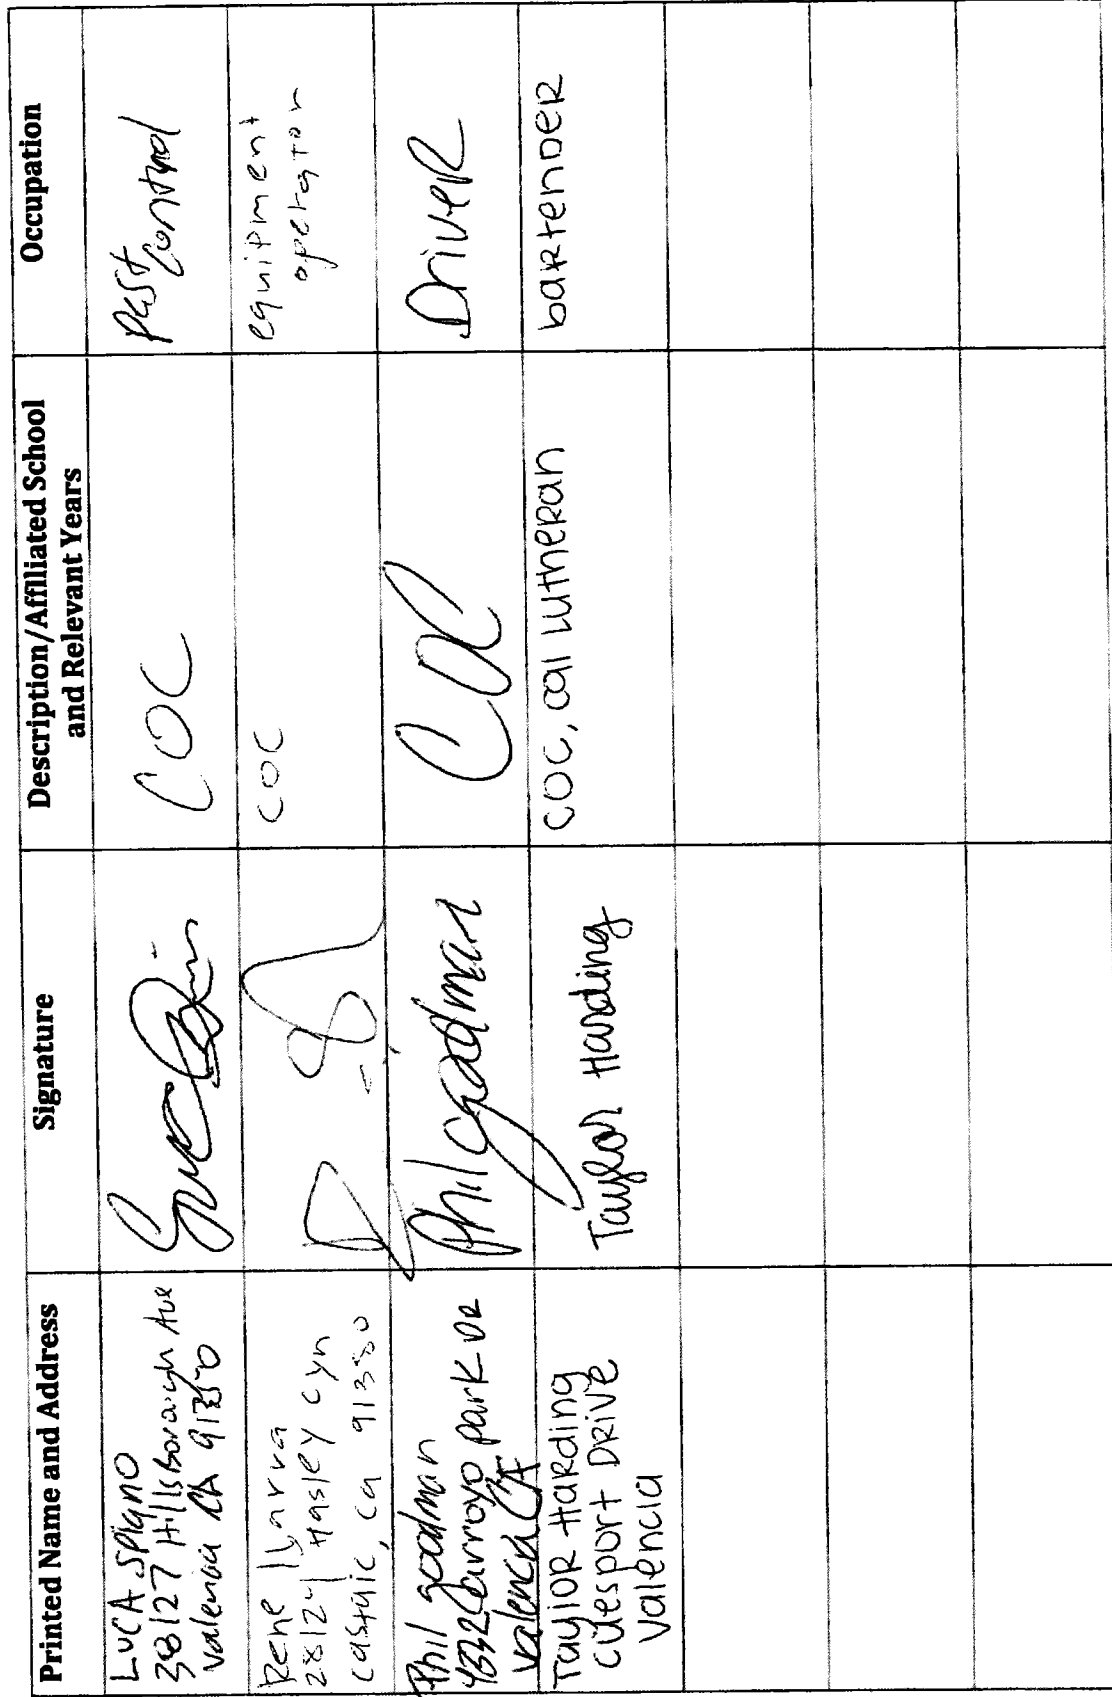 Printed Name and Address
Signature
Description/Affiliated School
and Relevant Years
Occupation
LUCA Spigno
28127 Hillsborough Ave
Valencia CA
COC
Pest
Control
Rene
Hasley Cyn
Castaic, Ca 91380
COC
equipment
operator
Phil goodman
Park DR
Valencia CA
Phil goodman
COC
Driver
TAYLOR HARding
DRive
Valencia
Taylor Harding
COC, cal Lutheran
baRtenDeR